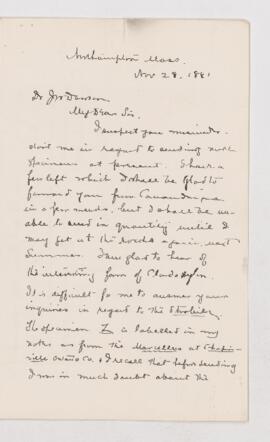 Northampton Mass.
Nov 28, 1881
Dr JW Dawson
My Dear Sir.
I suspect you misunder-
stood me in regard to sending more
specimens at present. I have a
few left which I shall be glad to
forward you from Canandaigua
in a few weeks, but I shall be un-
able to send in quantity until I
may get at the rocks again, next
Summer. I am glad to hear of
the interesting form of Cladoxylon.
It is difficult for me to answer your
inquiries in regard to the
The specimen Z is labelled in my
notes as from the Marcellus at
Co. & I recall that before sending
I was in much doubt about the